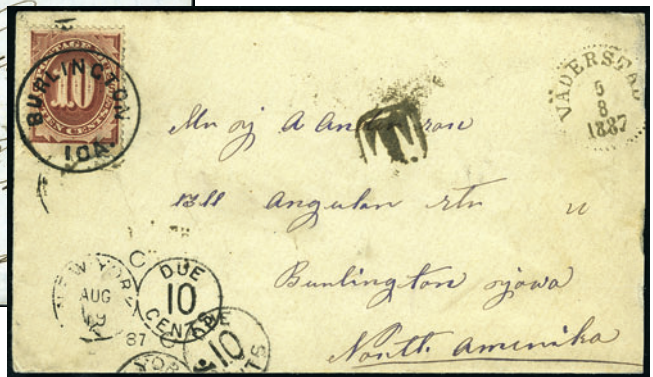 POSTAGE
10
TEN CENTS
BURLINGTON
IOA.
VÄDERSTAD
5
8
1887
T.
Mr oj A Anderson
1311 Angular str
Burlington ojowa
North Amerika
NEW YORK
AUG
19
87
DUE
10
CENTS
DUE
10
CENTS
YORK